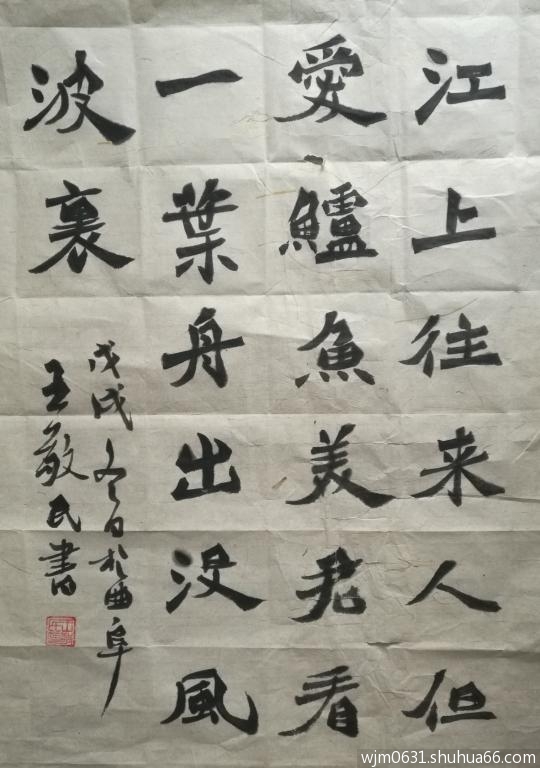 江上往来人但
愛鱸魚美君看
一葉舟出没風
波裏
戊戌冬日於曲阜
王敬民書
wjm0631.shuhua66.com